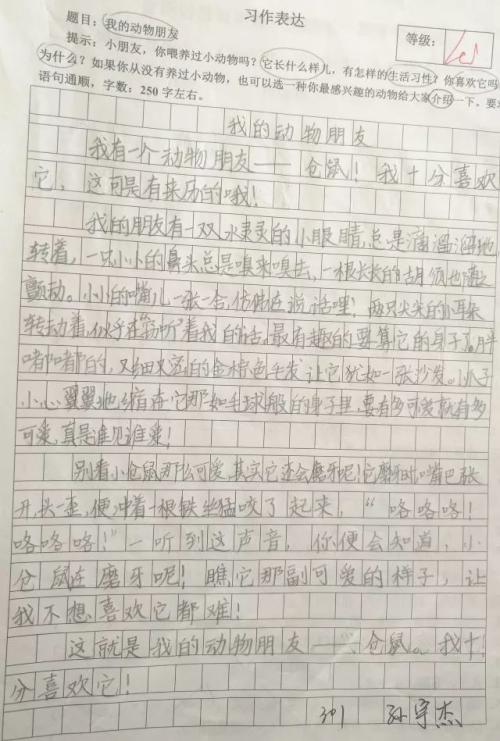 习作表达
题目：我的动物朋友
等级：
提示：小朋友，你喂养过小动物吗？它长什么样儿，有怎样的生活习性？你喜欢它吗
为什么？如果你从没有养过小动物，也可以选一种你最感兴趣的动物给大家介绍一下，要求
语句通顺，字数：250字左右。
我的动物朋友
我有一个动物朋友——仓鼠！我十分喜欢
它，这可是有来历的哦！
我的朋友有一双水灵灵的小眼睛，总是滴溜溜地
转着，一只小小的鼻头总是嗅来嗅去，一根长长的胡须也随之
颤动。小小的嘴儿一张一合，仿佛在说话哩！两只尖尖的小耳朵
转动着，似乎在聆听着我的话，最有趣的要算它的身子了。胖
嘟嘟的，又细又密的金棕色毛发让它犹如一张沙发。小爪子
小心翼翼地缩在它那如毛球般的身子里，要有多可爱就有多
可爱，真是谁见谁爱！
别看小仓鼠那么可爱，其实它还会磨牙呢！它磨牙时，嘴巴张
开，头一歪，便冲着一根铁丝猛咬了起来，“咯咯咯！
咯咯咯！”一听到这声音，你便会知道，小
仓鼠在磨牙呢！瞧它那副可爱的样子，让
我不想喜欢它都难！
这就是我的动物朋友——仓鼠。我十
分喜欢它！
301 孙宇杰